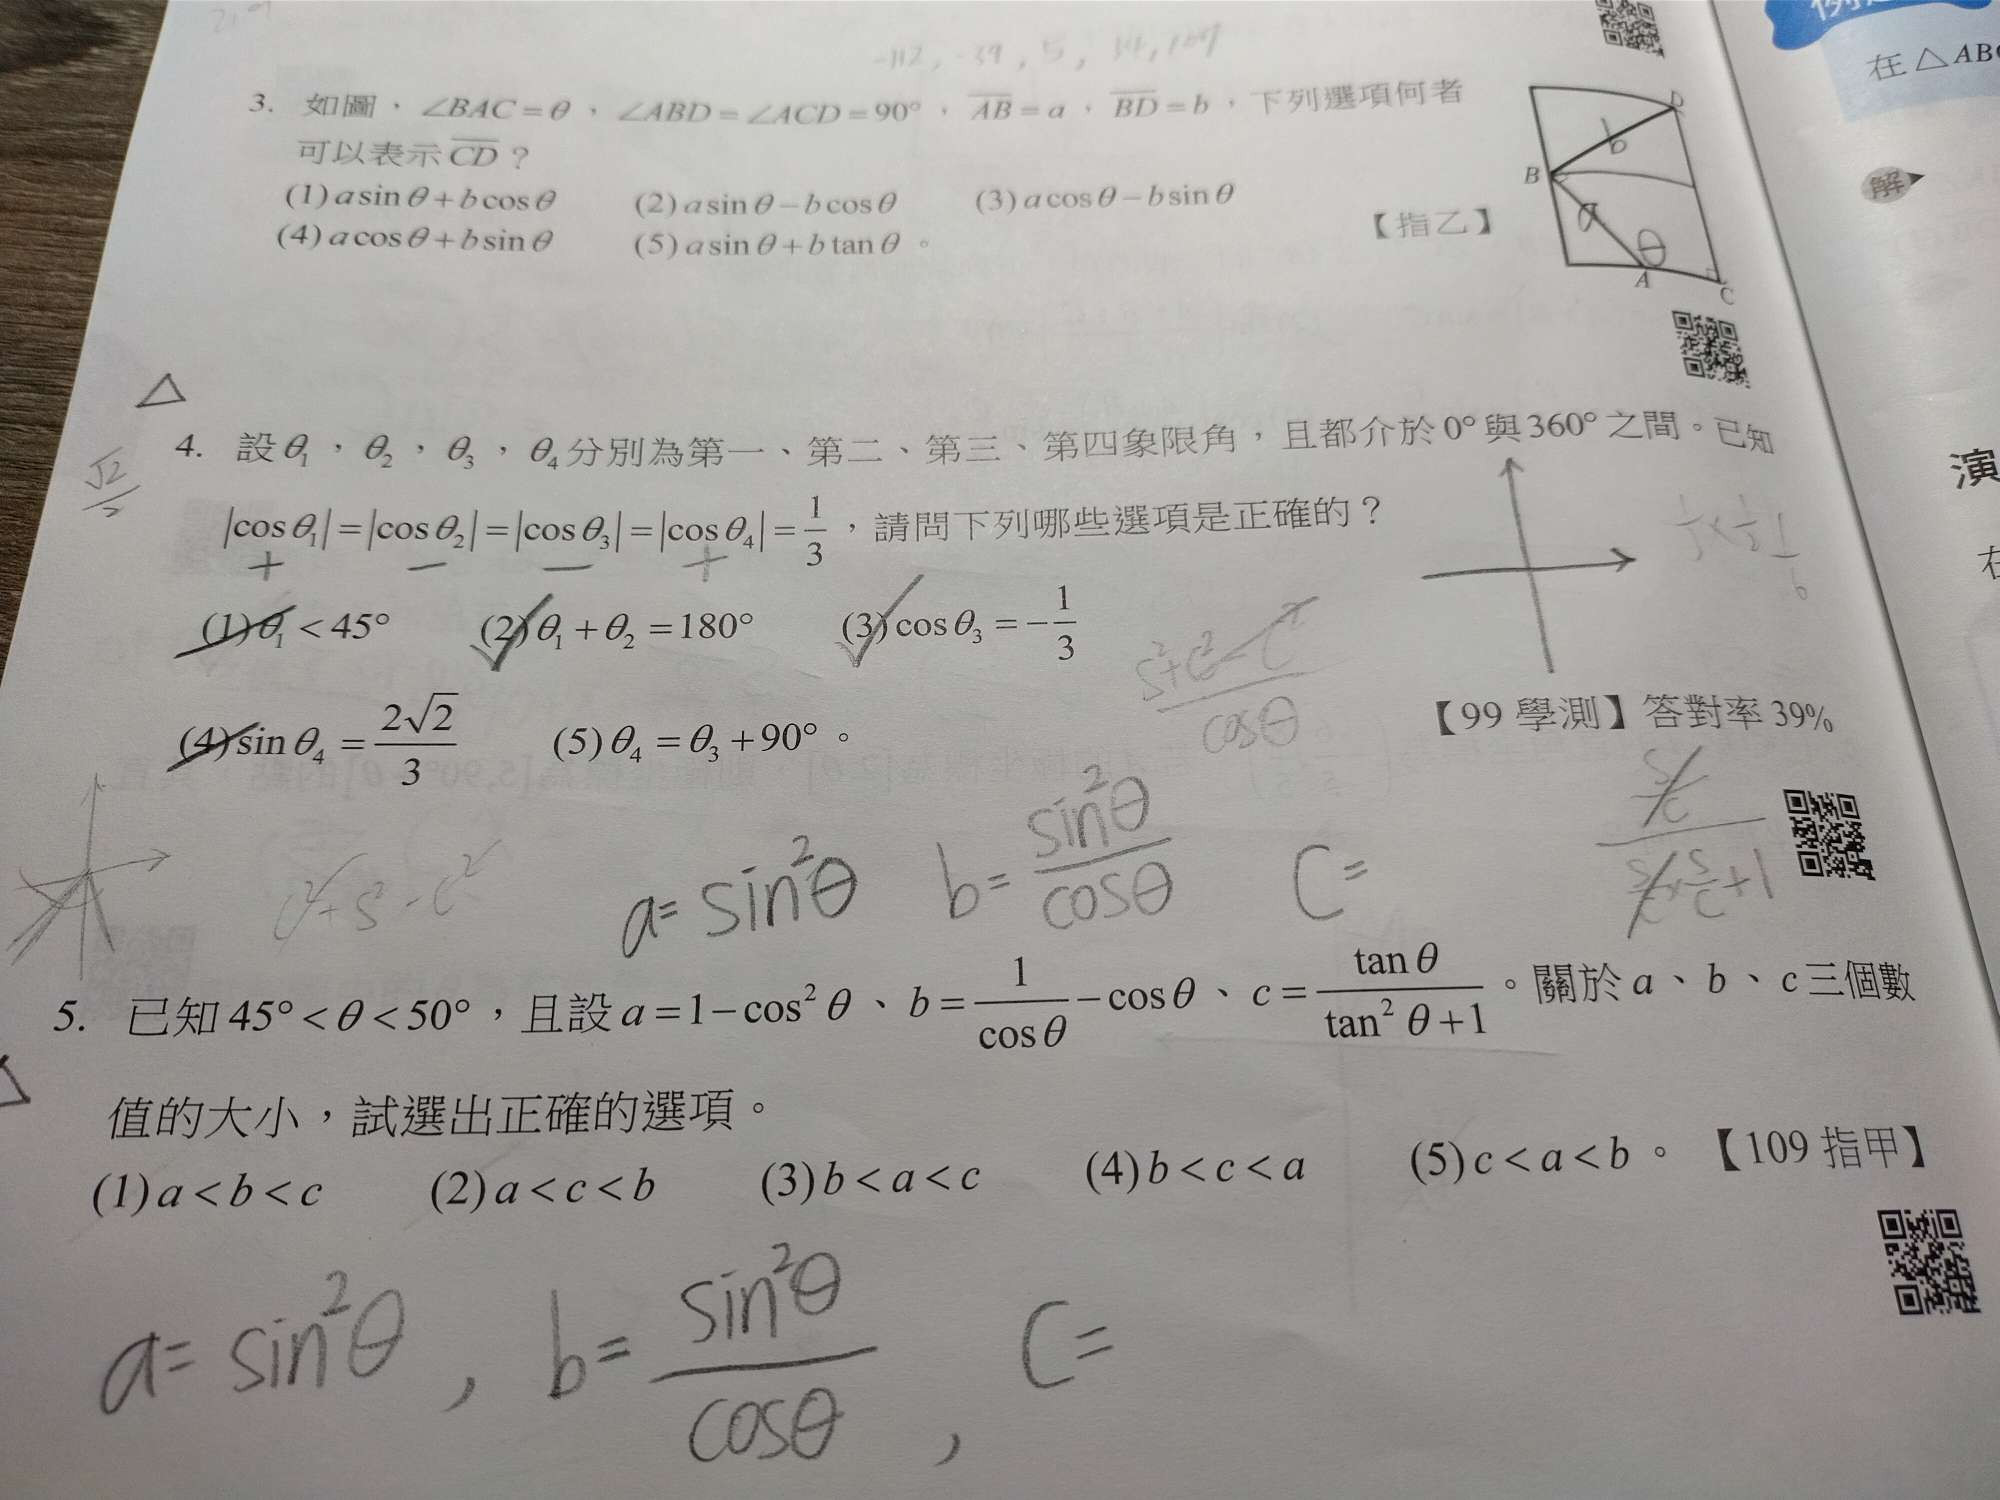 -112, -39, 5,
3. 如圖，∠BAC=θ，∠ABD=∠ACD=90°，AB=a，BD=b，下列選項何者
可以表示CD？
(1) a sin θ + b cos θ (2) a sin θ − b cos θ (3) a cos θ − b sin θ
(4) a cos θ + b sin θ (5) a sin θ + b tan θ。
【指乙】
D
b
B
a
θ
A
C
例
在△AB
解
√2
4. 設θ₁，θ₂，θ₃，θ₄分別為第一、第二、第三、第四象限角，且都介於0°與360°之間。已知
|cos θ₁|=|cos θ₂|=|cos θ₃|=|cos θ₄|=1/3，請問下列哪些選項是正確的？
+ − − +
(1) θ₁ < 45° (2) θ₁ + θ₂ = 180° (3) cos θ₃ = −1/3
(4) sin θ₄ = 2√2/3 (5) θ₄ = θ₃ + 90°。
【99 學測】答對率 39%
s²+c²−c²/cosθ
演
在
c²+s²-c²
a= sin²θ b= sin²θ/cosθ C=
5. 已知 45° < θ < 50°，且設 a = 1 − cos² θ、b = 1/cos θ − cos θ、c = tan θ/tan² θ + 1。關於 a、b、c 三個數
值的大小，試選出正確的選項。
(1) a < b < c (2) a < c < b (3) b < a < c (4) b < c < a (5) c < a < b。【109 指甲】
a= sin²θ , b= sin²θ/cosθ , C=